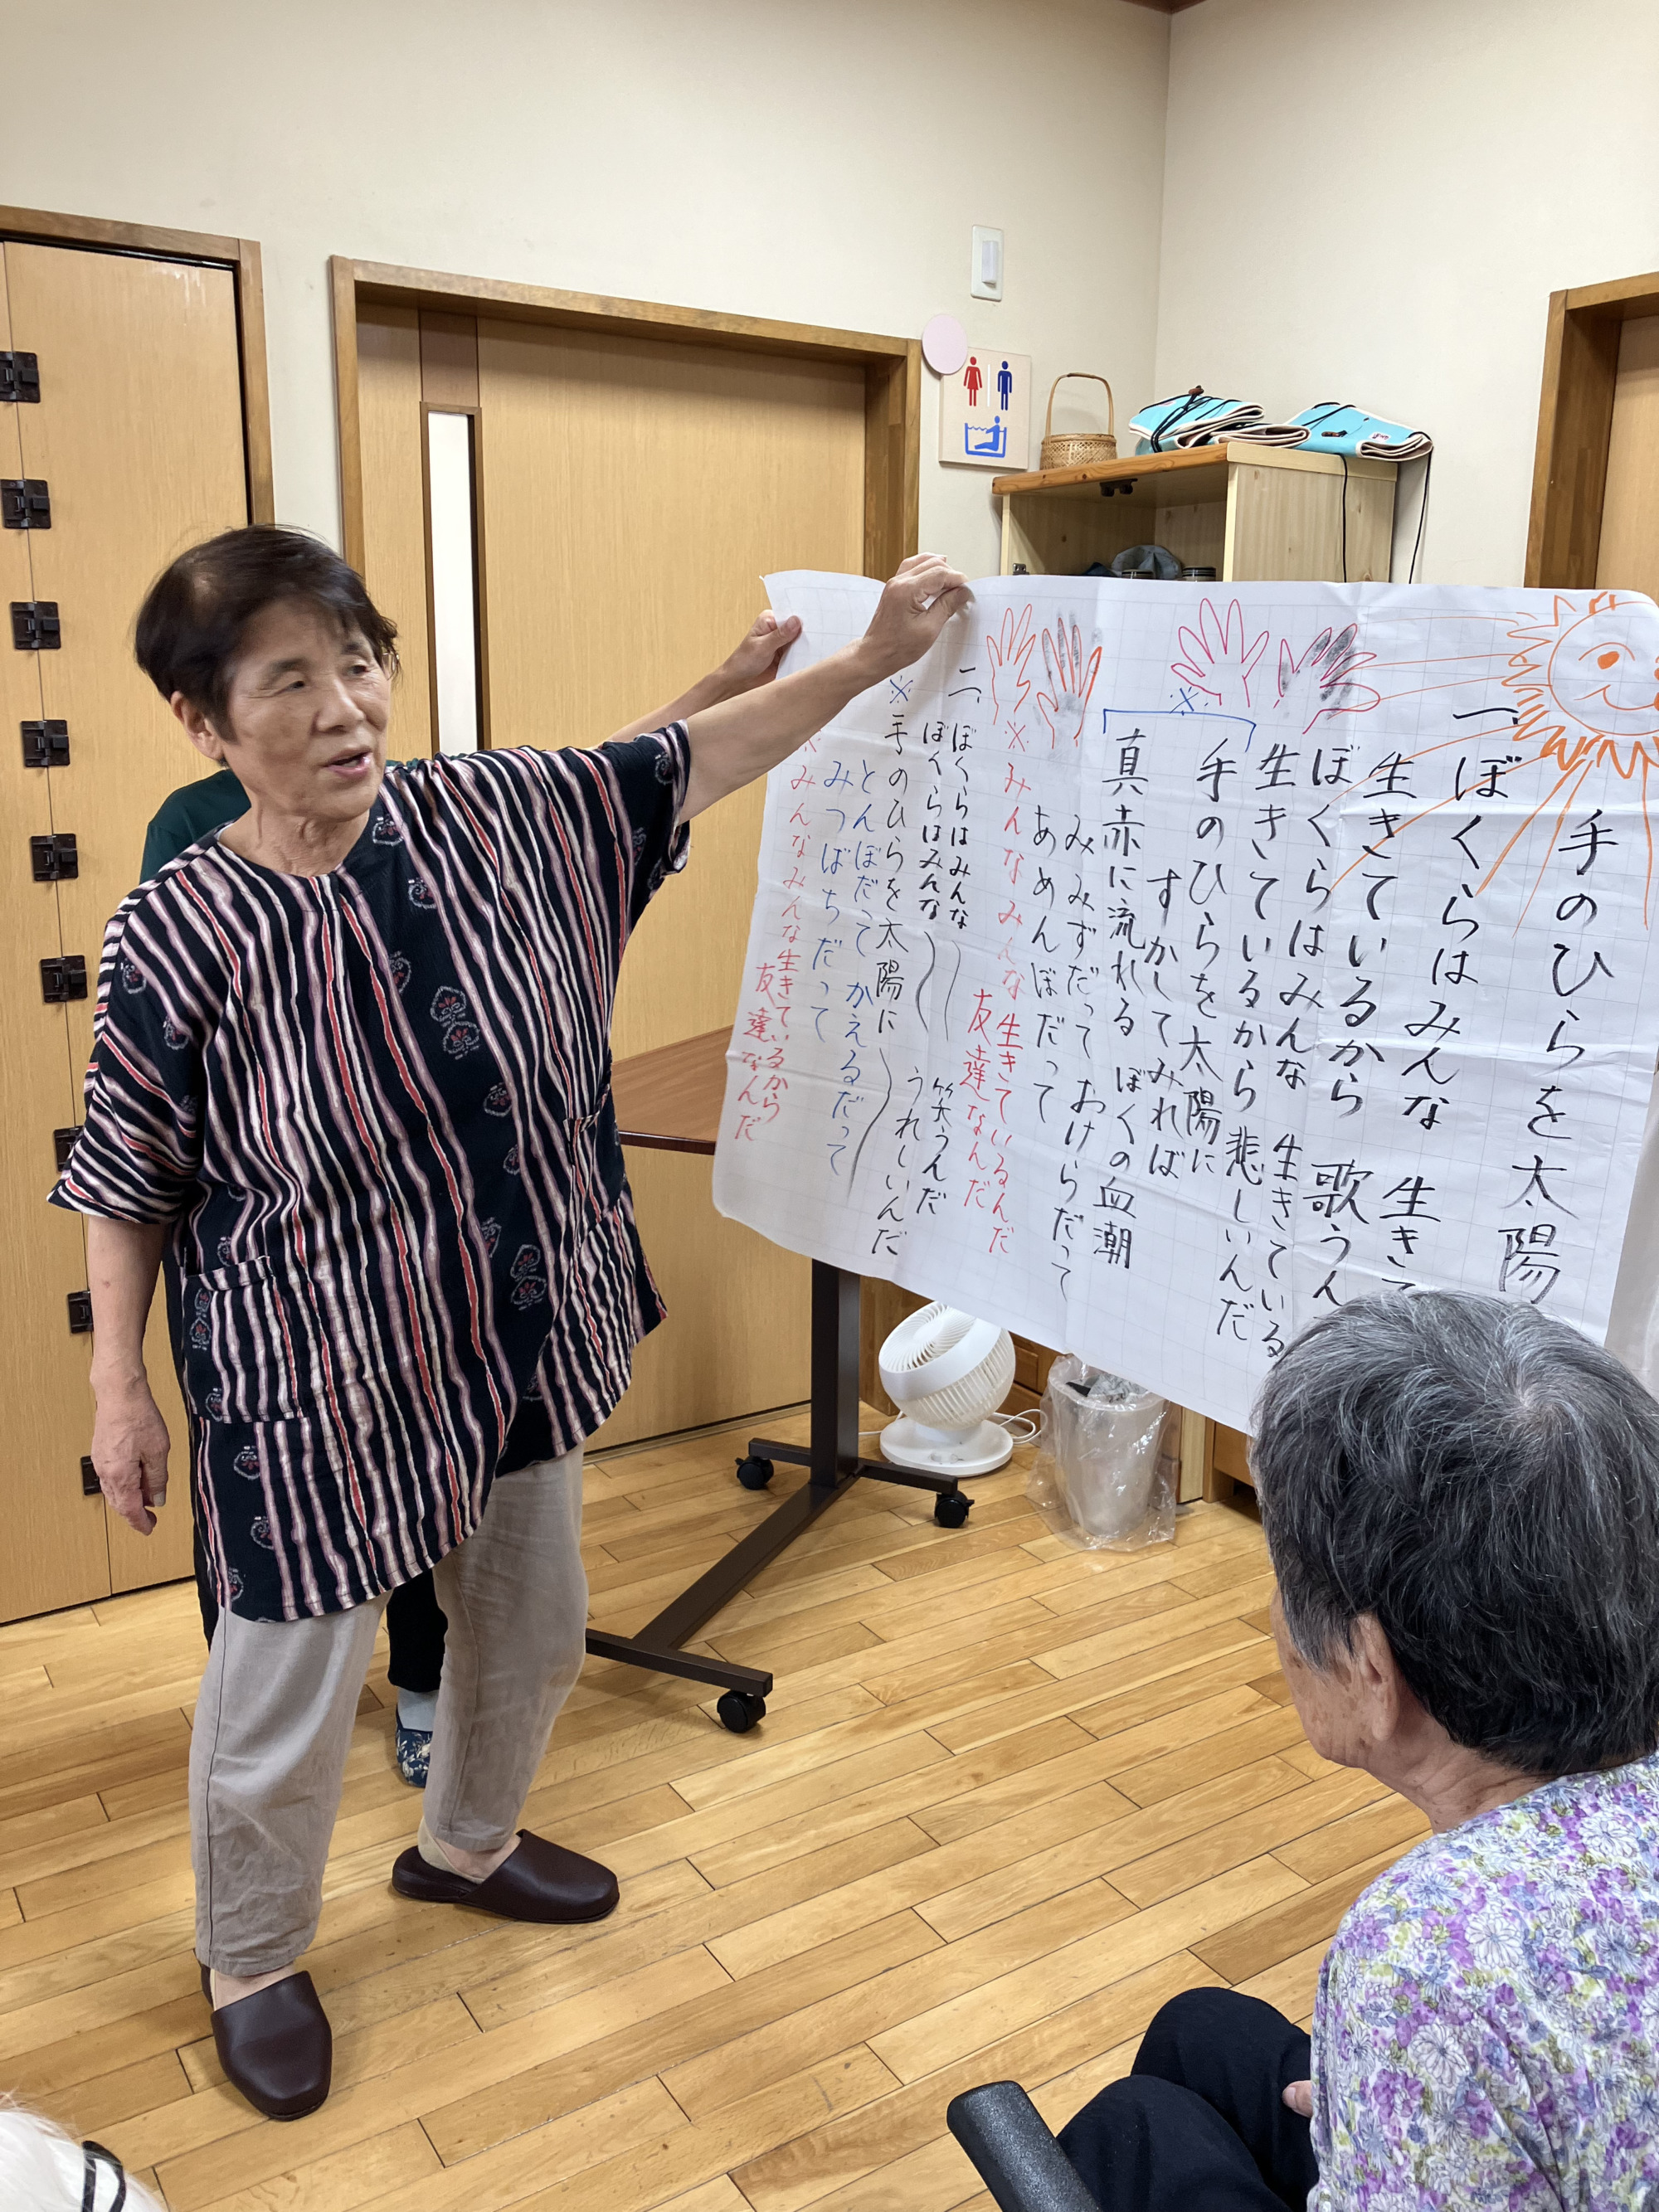 手のひらを太陽
一、ぼくらはみんな 生きて
生きているから 歌うん
ぼくらはみんな 生きている
生きているから 悲しいんだ
手のひらを太陽に
すかしてみれば
真赤に流れる ぼくの血潮
みみずだって おけらだって
あめんぼだって
※みんなみんな生きているんだ
友達なんだ
二、ぼくらはみんな 笑うんだ
ぼくらはみんな うれしいんだ
※手のひらを太陽に
とんぼだって かえるだって
みつばちだって
※みんなみんな生きているから
友達なんだ